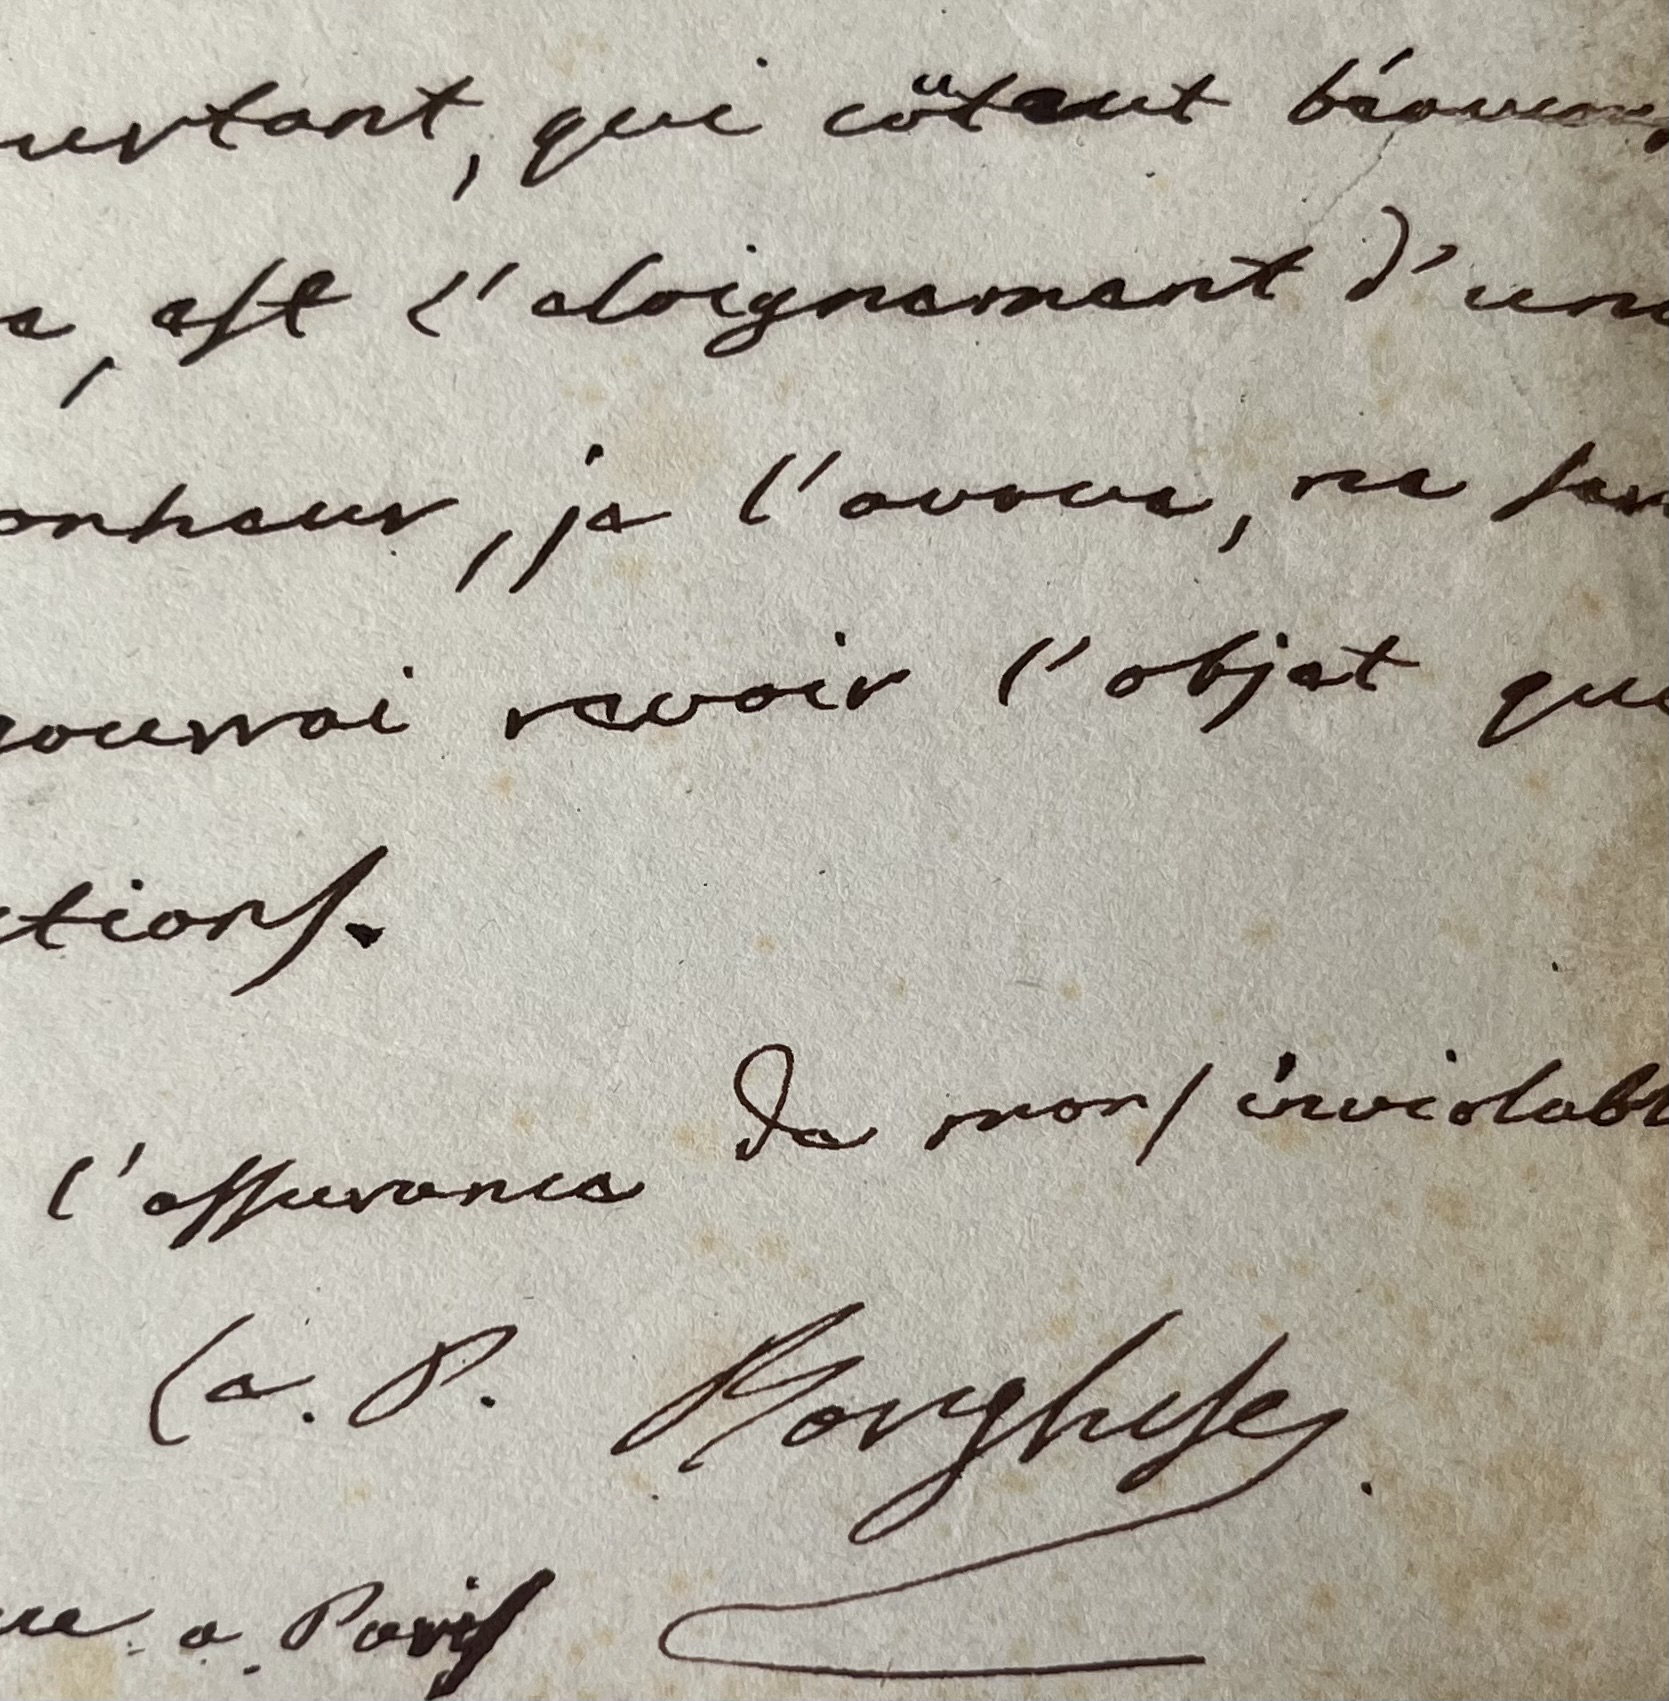 urtant, qui coûtent
e, est l'eloignement d'une
onheur, je l'avoue, ne
pourrai revoir l'objet que
ctions.
de mon inviolable
l'assurance
C. P. Borghese.
a Paris